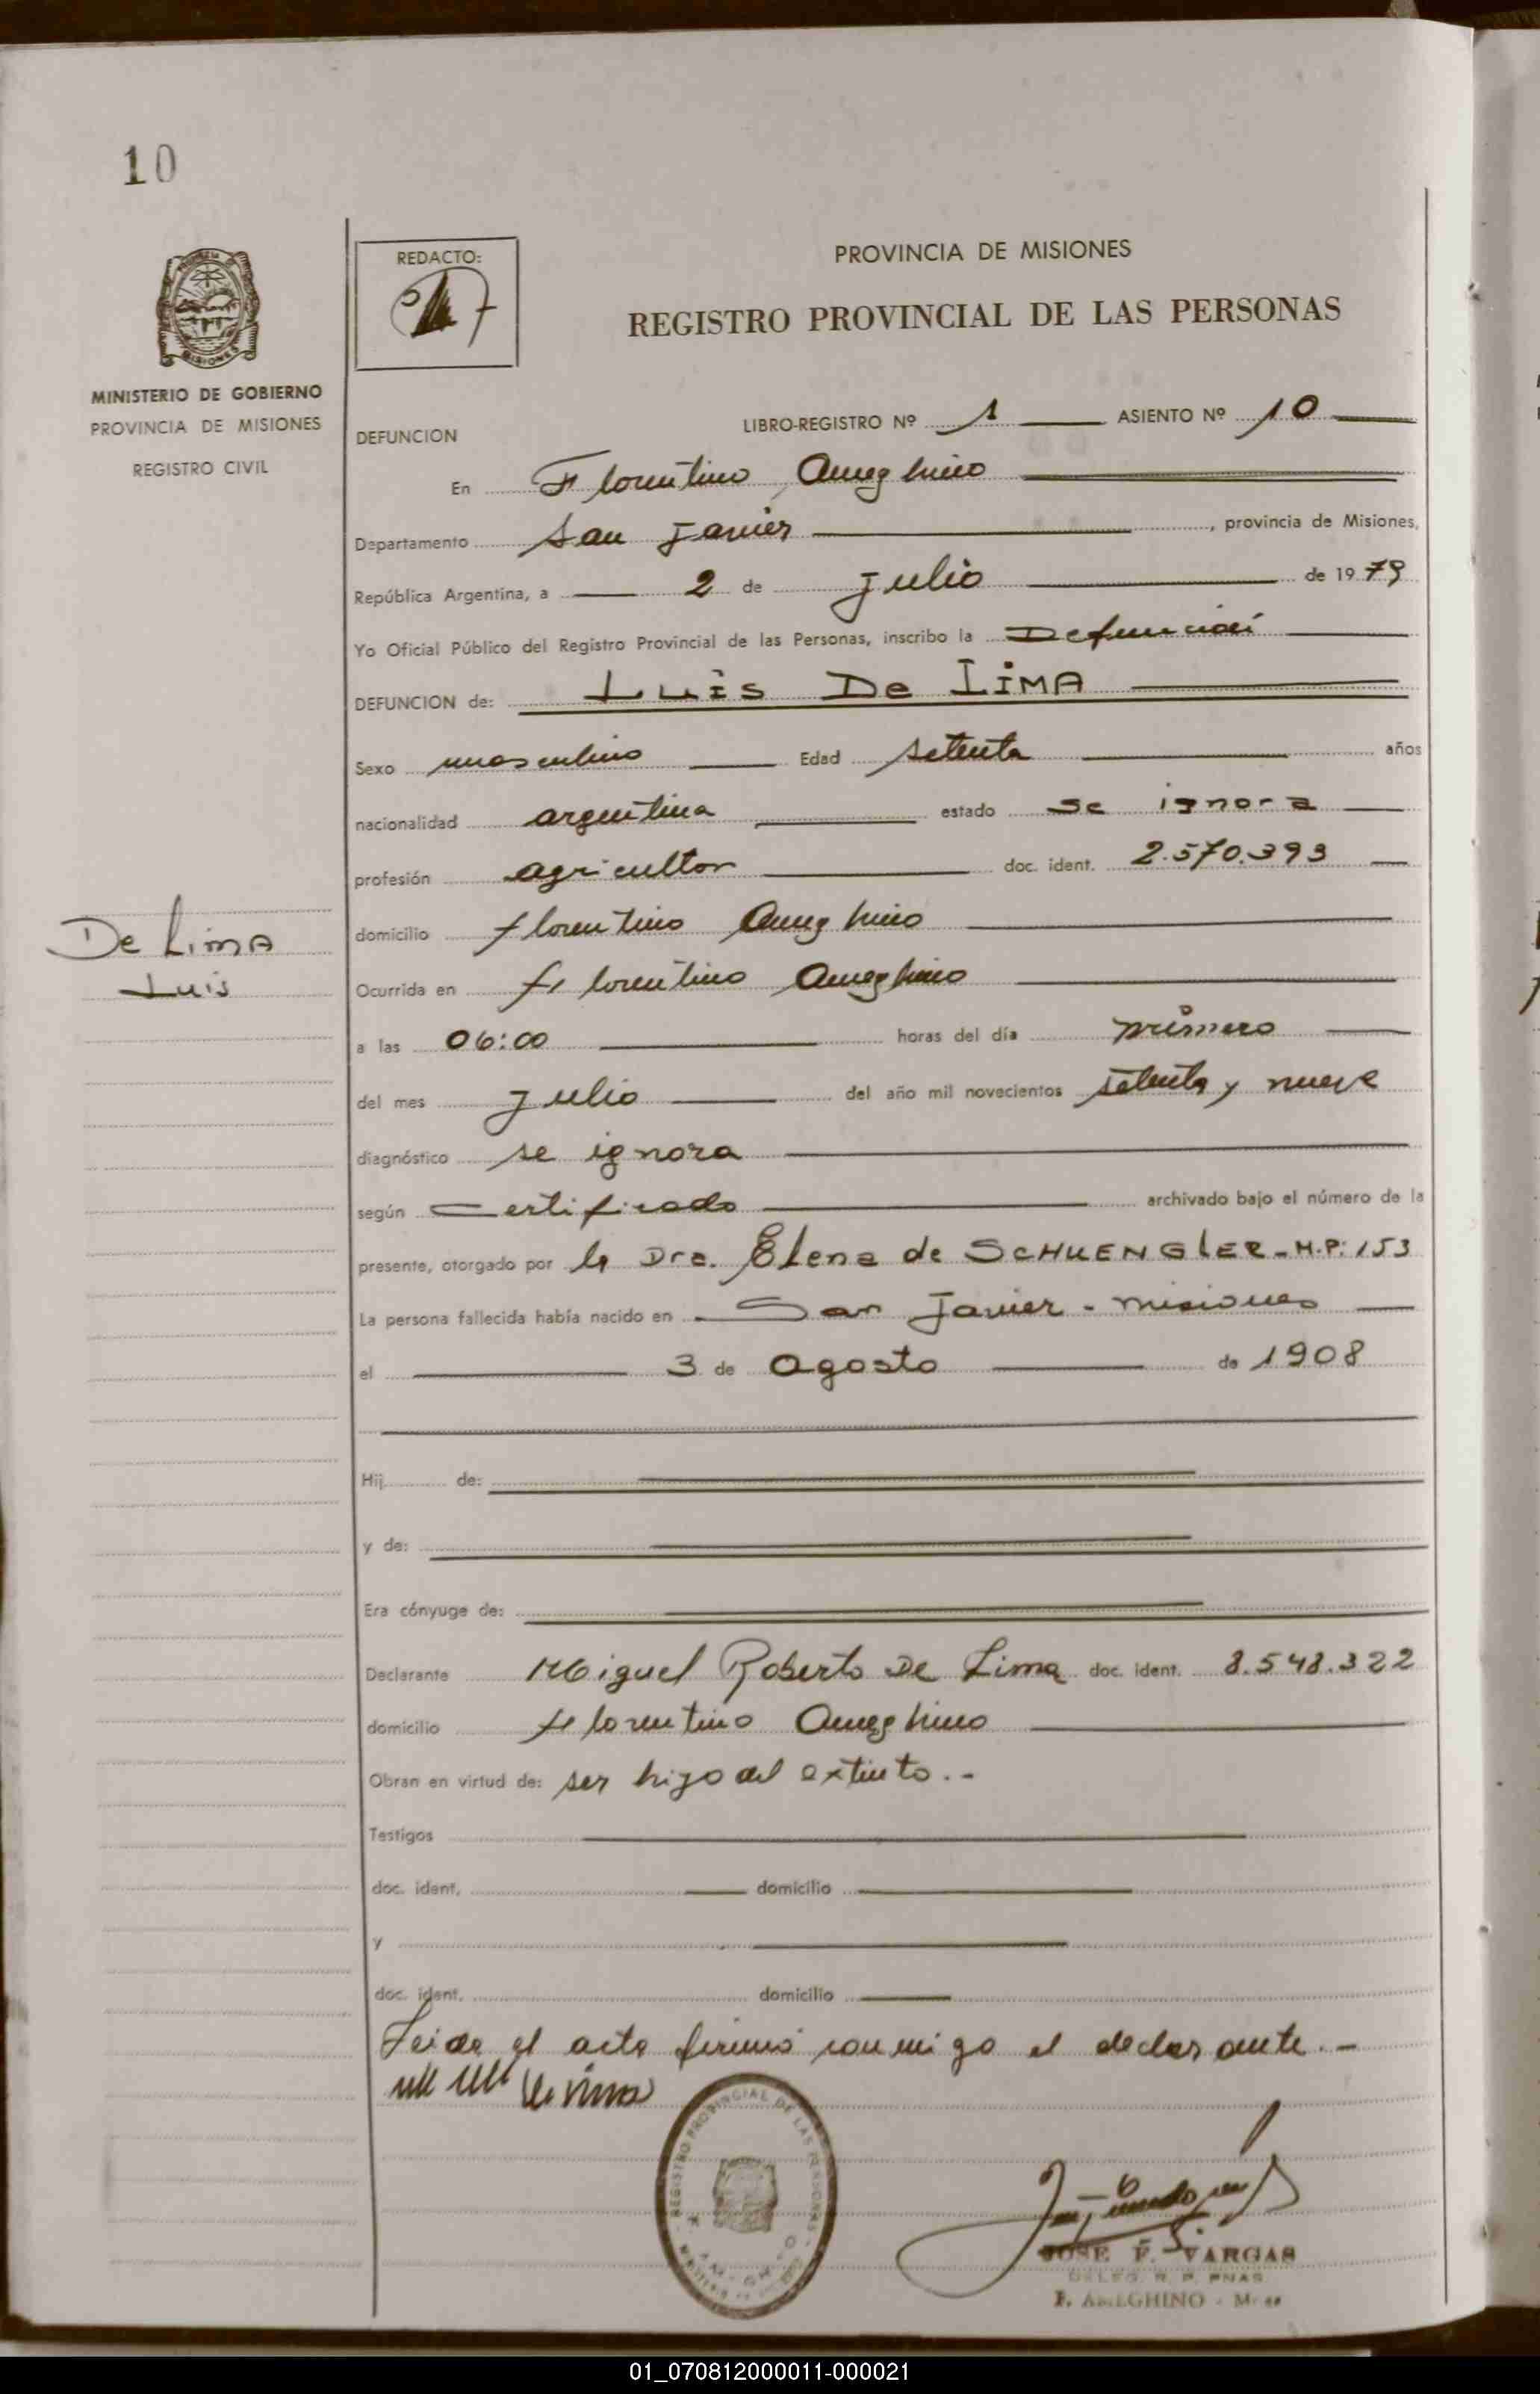 10
REDACTO:
PROVINCIA DE MISIONES
REGISTRO PROVINCIAL DE LAS PERSONAS
MISIONES
MINISTERIO DE GOBIERNO
PROVINCIA DE MISIONES
REGISTRO CIVIL
DEFUNCION
LIBRO-REGISTRO Nº 1 ASIENTO Nº 10
En Florentino Ameghino
Departamento San Javier, provincia de Misiones,
República Argentina, a 2 de Julio de 1979
Yo Oficial Público del Registro Provincial de las Personas, inscribo la Defunción
DEFUNCION de: Luis De Lima
Sexo masculino Edad setenta años
nacionalidad argentina estado se ignora
profesión agricultor doc. ident. 2.570.393
De Lima
Luis
domicilio florentino Ameghino
Ocurrida en florentino Ameghino
a las 06:00 horas del día primero
del mes Julio del año mil novecientos setenta y nueve
diagnóstico se ignora
según certificado archivado bajo el número de la
presente, otorgado por la Dra. Elena de SCHUENGLER - M.P: 153
La persona fallecida había nacido en San Javier - misiones
el 3 de Agosto de 1908
Hij de:
y de:
Era cónyuge de:
Declarante Miguel Roberto De Lima doc. ident. 8.548.322
domicilio florentino Ameghino
Obran en virtud de: ser hijo del extinto.-
Testigos
doc. ident. domicilio
y
doc. ident. domicilio
Leida el acta firmó conmigo el declarante.-
REGISTRO PROVINCIAL DE LAS PERSONAS
JOSE F. VARGAS
DELEG. R. P. PNAS
F. AMEGHINO
01_070812000011-000021